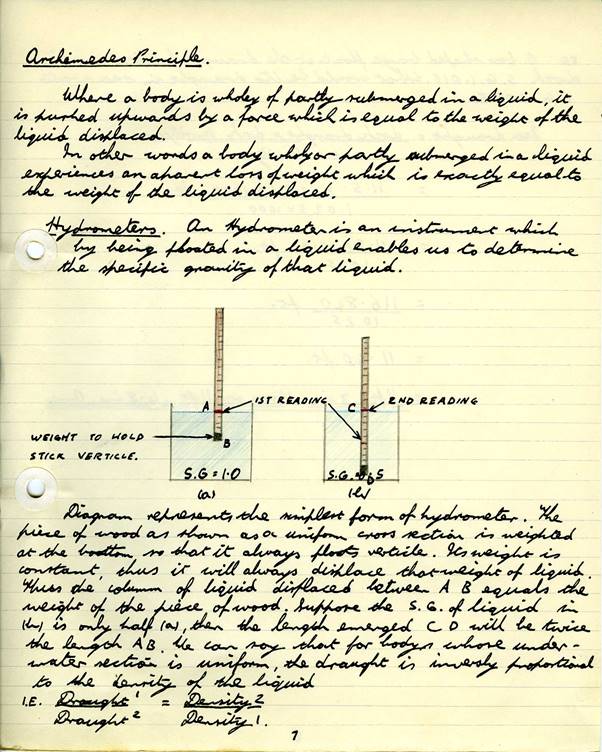 Archimedes Principle.
Where a body is wholey of partly submerged in a liquid, it
is pushed upwards by a force which is equal to the weight of the
liquid displaced.
In other words a body wholy or partly submerged in a liquid
experiences an aparent loss of weight which is exactly equal to
the weight of the liquid displaced.
Hydrometers. An Hydrometer is an instrument which
by being floated in a liquid enables us to determine
the specific gravity of that liquid.
A 1ST READING C 2ND READING
WEIGHT TO HOLD B
STICK VERTICLE.
S.G = 1.0 S.G. = .5
(a) (b)
Diagram represents the simplest form of hydrometer. The
piece of wood as shown as a uniform cross section is weighted
at the bottm, so that it always floots verticle. Its weight is
constant, thus it will always displace that weight of liquid.
Thuss the columm of liquid displaced between A B equals the
weight of the piece, of wood. Suppose the S.G. of liquid in
(b), is only half (a), then the length emerged C D will be twice
the length AB. We can say that for bodys whose under-
water section is uniform, the draught is inversly proportional
to the density of the liquid
I.E. Draught 1 = Density 2
Draught 2 Density 1.
7